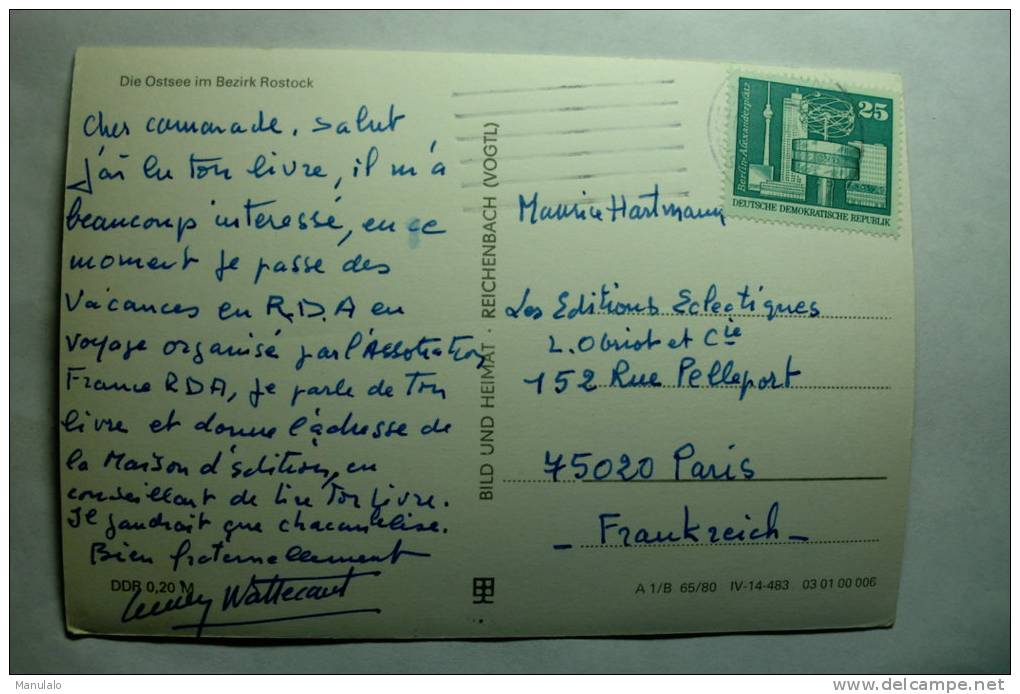 Die Ostsee im Bezirk Rostock
cher camarade. salut
j'ai lu ton livre, il m'a
beaucoup interessé, en ce
moment je passe des
vacances en R.D.A en
voyage organisé par l'Association
France RDA, je parle de ton
livre et donne l'adresse de
la Maison d'édition, en
conseillant de lire ton livre.
Il faudrait que chacun le lise.
Bien fraternellement
Wattecant
DDR 0,20 M
BILD UND HEIMAT · REICHENBACH (VOGTL)
Berlin-Alexanderplatz
25
DEUTSCHE DEMOKRATISCHE REPUBLIK
Maurice Hartmann
Les Editions Eclectiques
L. Obriot et Cie
152 Rue Pelleport
75020 Paris
- Frankreich -
A 1/B 65/80 IV-14-483 03 01 00 006
Manulalo
www.delcampe.net